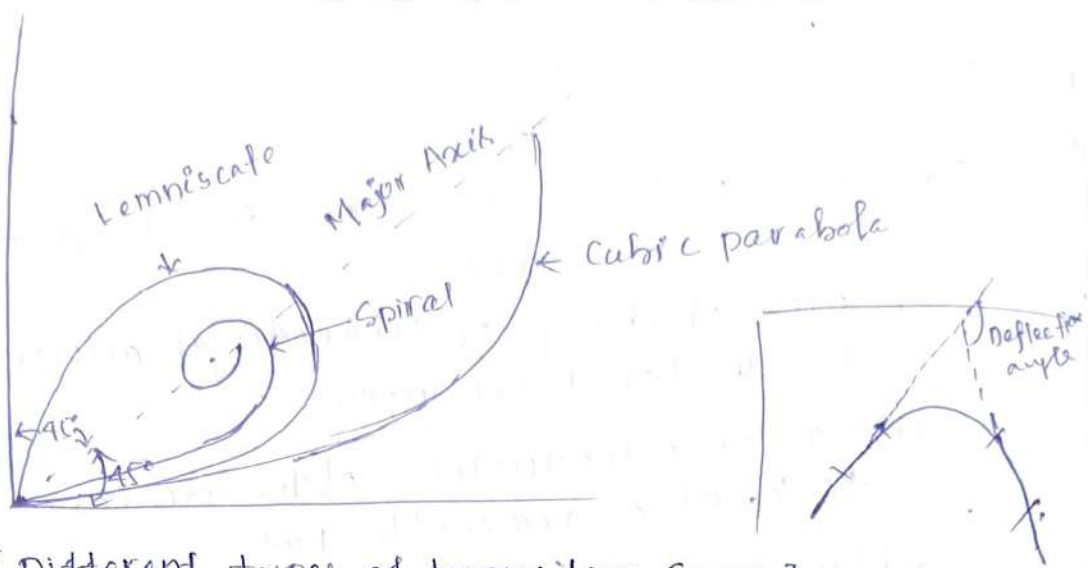 Lemniscate
Major Axis
Cubic parabola
Spiral
Deflection
angle
45°
45°
Different types of transition Curve